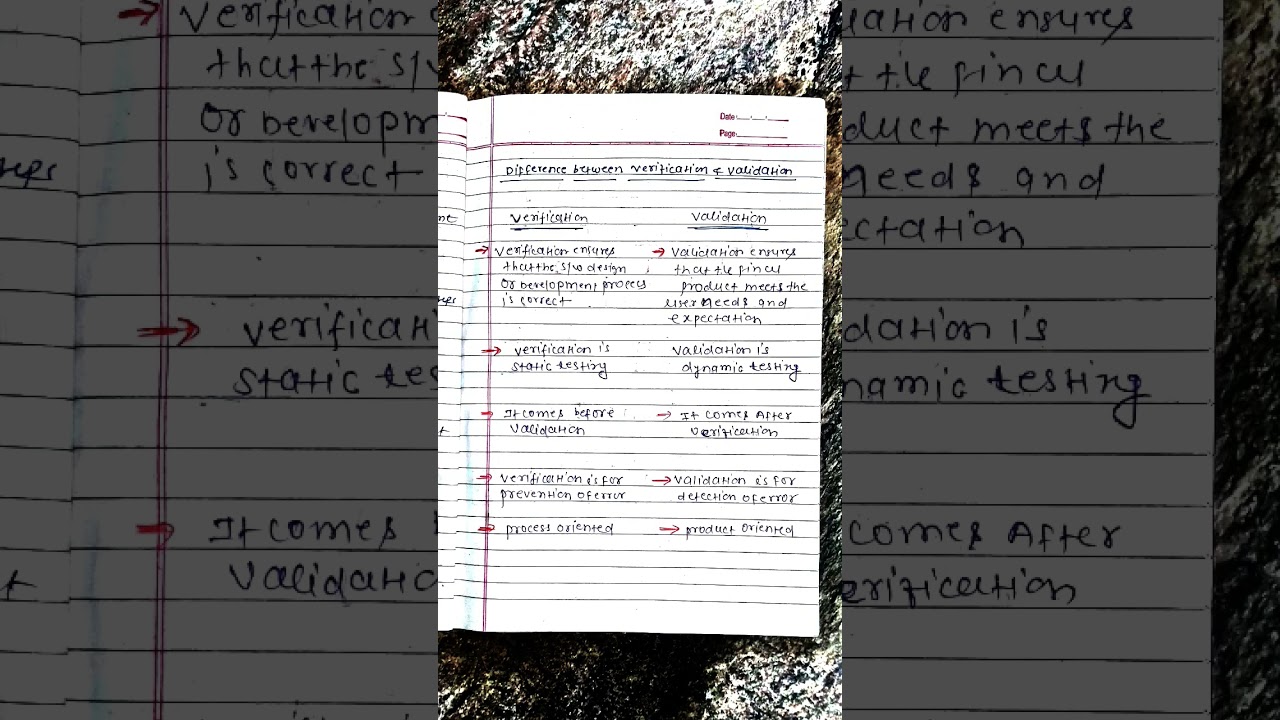 Date:
Page:
Difference between verification & validation
verification
validation
→ verification ensures
that the s/w design
or development process
is correct
→ validation ensures
that the final
product meets the
user needs and
expectation
→ verification is
static testing
validation is
dynamic testing
→ It comes before
validation
→ It comes After
verification
→ verification is for
prevention of error
→ validation is for
detection of error
→ process oriented
→ product oriented